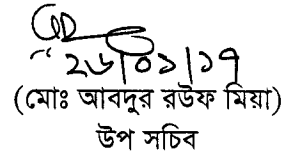 ২৬/০১/১৭
(মোঃ আবদুর রউফ মিয়া)
উপ সচিব